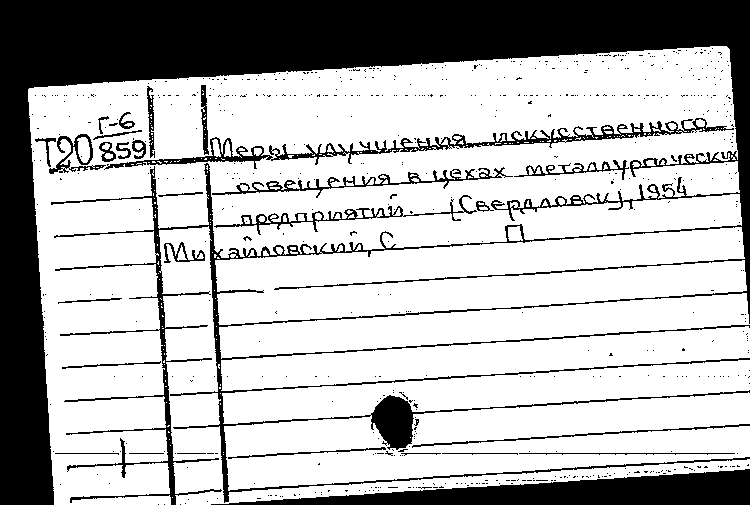 Г-6
Т20 859
Меры улучшения искусственного
освещения в цехах металлургических
предприятий. [Свердловск], 1954.
Михайловский, С П